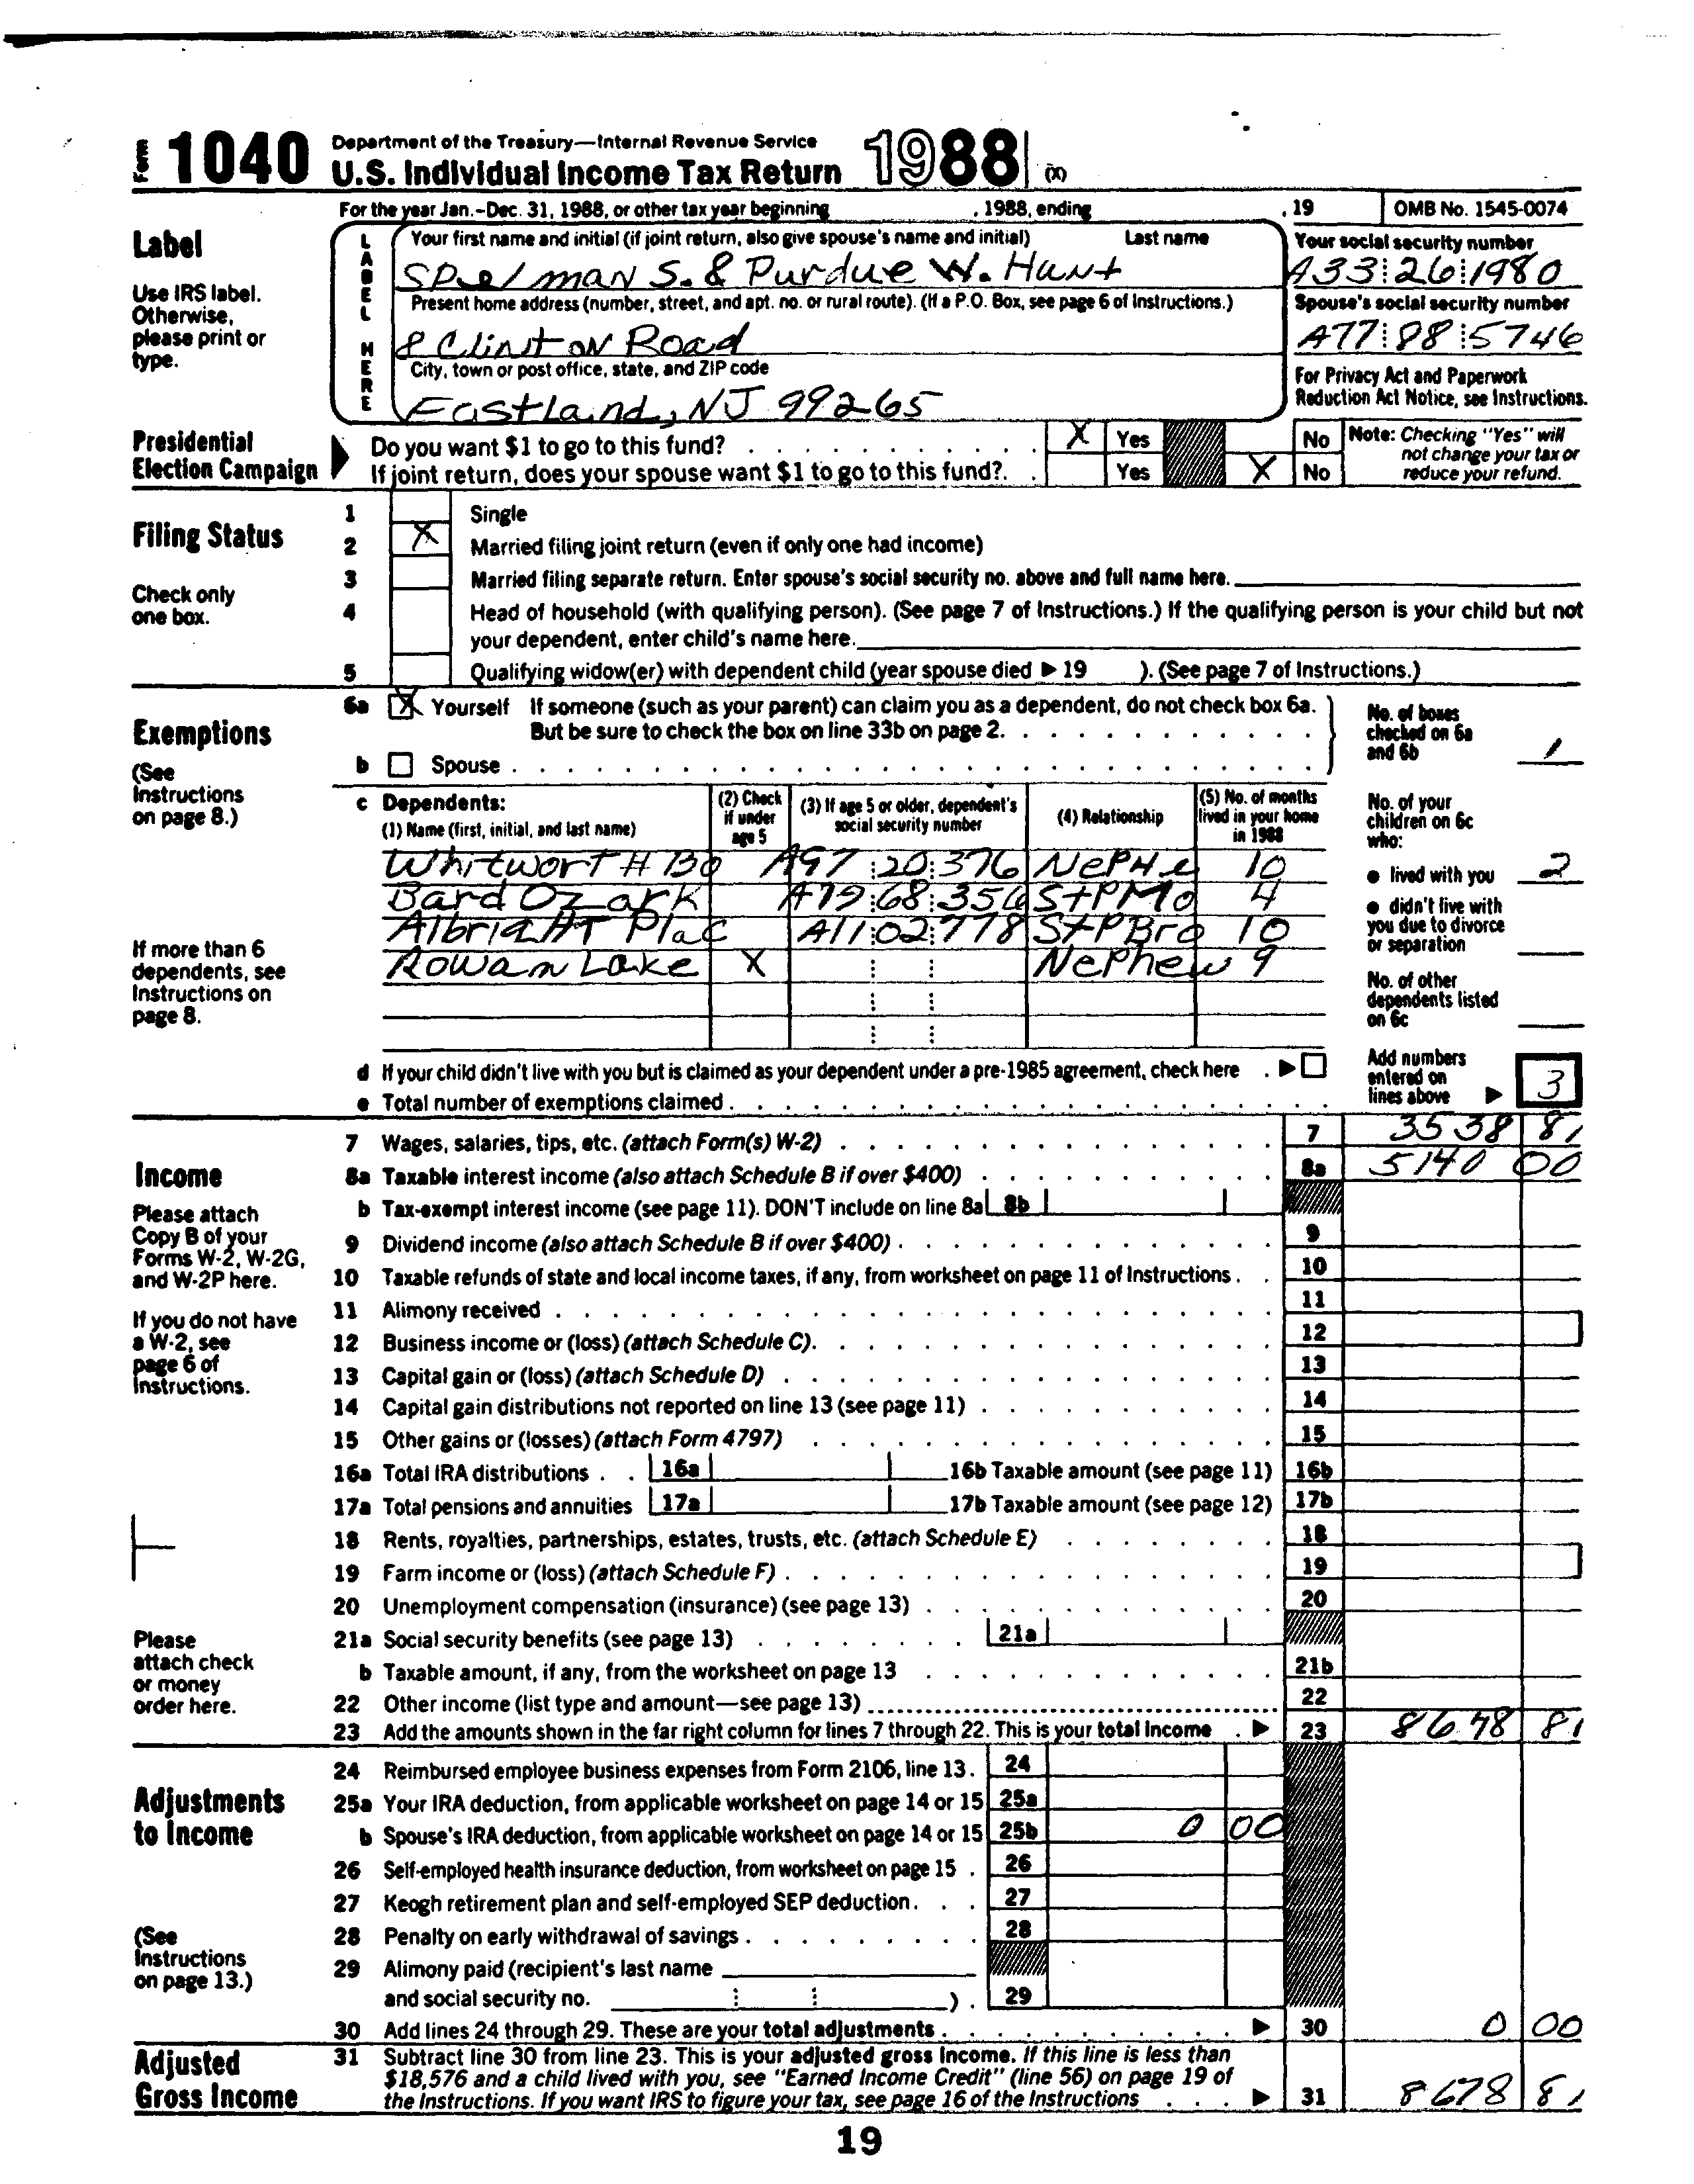 Form 1040 Department of the Treasury—Internal Revenue Service
U.S. Individual Income Tax Return 1988 (X)
For the year Jan.-Dec. 31, 1988, or other tax year beginning , 1988, ending , 19 OMB No. 1545-0074
Label
Use IRS label. Otherwise, please print or type.
LABEL HERE
Your first name and initial (if joint return, also give spouse's name and initial) Last name
Spelman S. & Purdue W. Hunt
Your social security number
A33 26 1980
Present home address (number, street, and apt. no. or rural route). (If a P.O. Box, see page 6 of Instructions.)
8 Clinton Road
Spouse's social security number
A77 88 5746
City, town or post office, state, and ZIP code
Eastland, NJ 99265
For Privacy Act and Paperwork Reduction Act Notice, see Instructions.
Presidential Election Campaign
Do you want $1 to go to this fund? X Yes No
If joint return, does your spouse want $1 to go to this fund? Yes X No
Note: Checking "Yes" will not change your tax or reduce your refund.
Filing Status
Check only one box.
1 Single
2 X Married filing joint return (even if only one had income)
3 Married filing separate return. Enter spouse's social security no. above and full name here.
4 Head of household (with qualifying person). (See page 7 of Instructions.) If the qualifying person is your child but not
your dependent, enter child's name here.
5 Qualifying widow(er) with dependent child (year spouse died ▶ 19 ). (See page 7 of Instructions.)
Exemptions
(See Instructions on page 8.)
6a X Yourself If someone (such as your parent) can claim you as a dependent, do not check box 6a.
But be sure to check the box on line 33b on page 2.
b Spouse
No. of boxes checked on 6a and 6b 1
c Dependents:
(1) Name (first, initial, and last name) (2) Check if under age 5 (3) If age 5 or older, dependent's social security number (4) Relationship (5) No. of months lived in your home in 1988
Whitwort H Bo A97 20 376 NePHe 10
Bard Ozark A79 68 356 StPMo 4
AlbrigHT Plac A11 02 778 StPBro 10
Rowan Lake X NePhew 9
If more than 6 dependents, see Instructions on page 8.
No. of your children on 6c who:
● lived with you 2
● didn't live with you due to divorce or separation
No. of other dependents listed on 6c
d If your child didn't live with you but is claimed as your dependent under a pre-1985 agreement, check here ▶
e Total number of exemptions claimed
Add numbers entered on lines above ▶ 3
Income
Please attach Copy B of your Forms W-2, W-2G, and W-2P here.
If you do not have a W-2, see page 6 of Instructions.
Please attach check or money order here.
7 Wages, salaries, tips, etc. (attach Form(s) W-2) 7 3538 81
8a Taxable interest income (also attach Schedule B if over $400) 8a 5140 00
b Tax-exempt interest income (see page 11). DON'T include on line 8a 8b
9 Dividend income (also attach Schedule B if over $400) 9
10 Taxable refunds of state and local income taxes, if any, from worksheet on page 11 of Instructions 10
11 Alimony received 11
12 Business income or (loss) (attach Schedule C) 12
13 Capital gain or (loss) (attach Schedule D) 13
14 Capital gain distributions not reported on line 13 (see page 11) 14
15 Other gains or (losses) (attach Form 4797) 15
16a Total IRA distributions 16a 16b Taxable amount (see page 11) 16b
17a Total pensions and annuities 17a 17b Taxable amount (see page 12) 17b
18 Rents, royalties, partnerships, estates, trusts, etc. (attach Schedule E) 18
19 Farm income or (loss) (attach Schedule F) 19
20 Unemployment compensation (insurance) (see page 13) 20
21a Social security benefits (see page 13) 21a
b Taxable amount, if any, from the worksheet on page 13 21b
22 Other income (list type and amount—see page 13) 22
23 Add the amounts shown in the far right column for lines 7 through 22. This is your total income ▶ 23 8678 81
Adjustments to Income
(See Instructions on page 13.)
24 Reimbursed employee business expenses from Form 2106, line 13. 24
25a Your IRA deduction, from applicable worksheet on page 14 or 15 25a
b Spouse's IRA deduction, from applicable worksheet on page 14 or 15 25b 0 00
26 Self-employed health insurance deduction, from worksheet on page 15 26
27 Keogh retirement plan and self-employed SEP deduction 27
28 Penalty on early withdrawal of savings 28
29 Alimony paid (recipient's last name
and social security no. ) 29
30 Add lines 24 through 29. These are your total adjustments ▶ 30 0 00
Adjusted Gross Income
31 Subtract line 30 from line 23. This is your adjusted gross income. If this line is less than
$18,576 and a child lived with you, see "Earned Income Credit" (line 56) on page 19 of
the Instructions. If you want IRS to figure your tax, see page 16 of the Instructions ▶ 31 8678 81
19